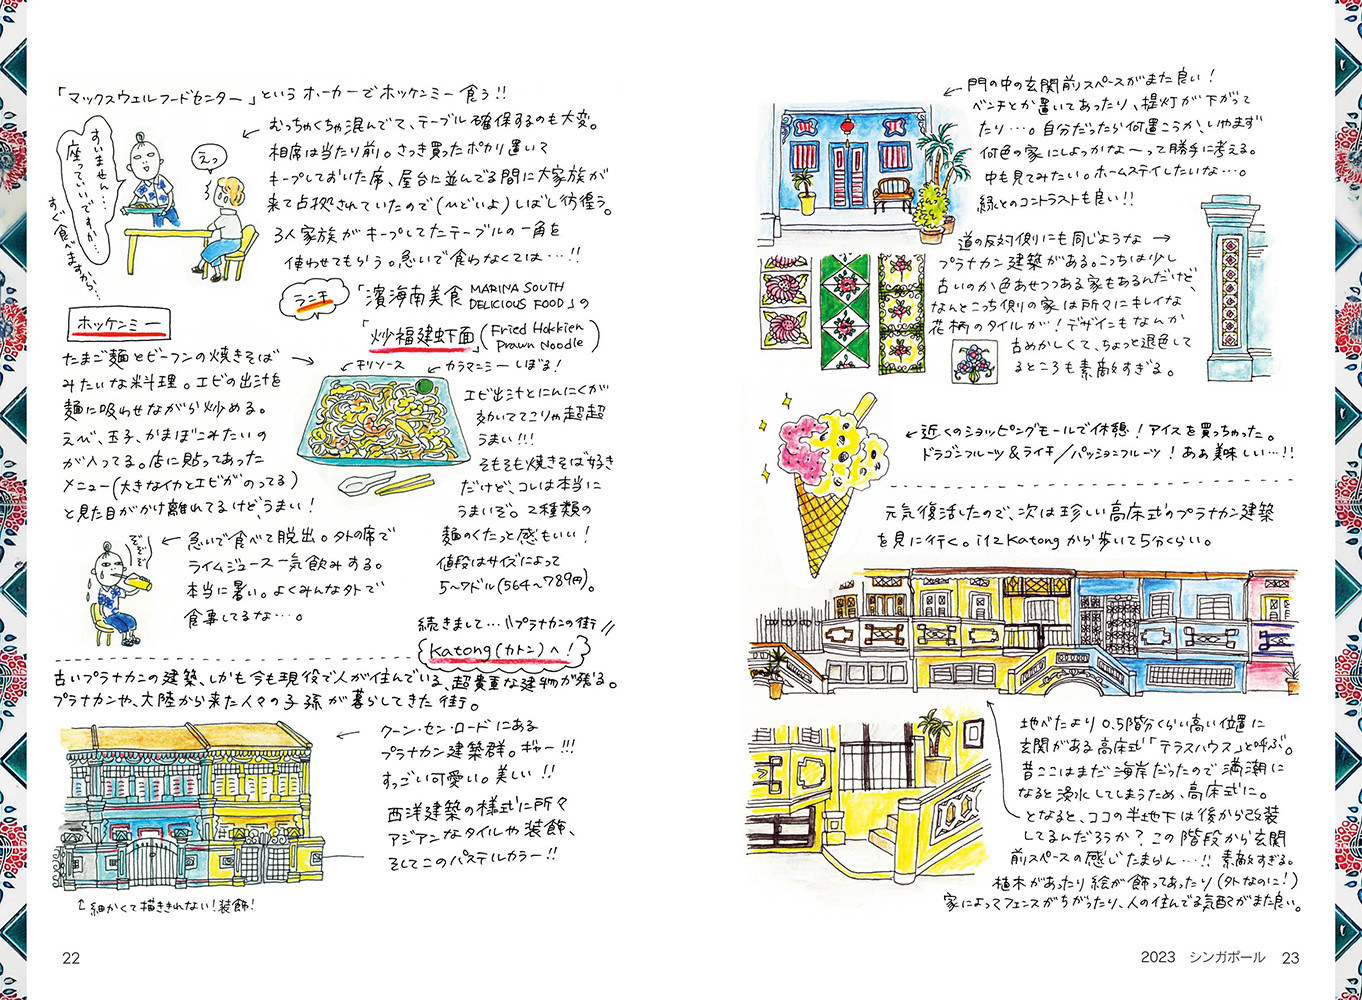 「マックスウェルフードセンター」というホーカーでホッケンミー食う!!
すいません…
座っていいですか…
すぐ食べますから…
えっ
むっちゃくちゃ混んでて、テーブル確保するのも大変。
相席は当たり前。さっき買ったポカリ置いて
キープしておいた席、屋台に並んでる間に大家族が
来て占拠されていたので(ひどいよ)しばし彷徨う。
3人家族がキープしてたテーブルの一角を
使わせてもらう。急いで食わなくては…!!
ランチ
「濱海南美食 MARINA SOUTH DELICIOUS FOOD」の
「炒福建虾面」(Fried Hokkien Prawn Noodle)
ホッケンミー
たまご麺とビーフンの焼きそば
みたいな料理。エビの出汁を
麺に吸わせながら炒める。
えび、玉子、かまぼこみたいの
が入ってる。店に貼ってあった
メニュー(大きなイカとエビがのってる)
と見た目がかけ離れてるけど、うまい!
チリソース
カラマンシーしぼる!
エビ出汁とにんにくが
効いててこりゃ超超
うまい!!!
そもそも焼きそば好き
だけど、コレは本当に
うまいぞ。2種類の
麺のくたっと感もいい!
値段はサイズによって
5〜7ドル(564〜789円)。
ぞぞぞ
急いで食べて脱出。外の席で
ライムジュース一気飲みする。
本当に暑い。よくみんな外で
食事してるな…。
続きまして…\\プラナカンの街//
Katong(カトン)へ!
古いプラナカンの建築、しかも今も現役で人が住んでいる、超貴重な建物が残る。
プラナカンや、大陸から来た人々の子孫が暮らしてきた街。
クーン・セン・ロードにある
プラナカン建築群。ギャー!!!
すっごい可愛い。美しい!!
西洋建築の様式に所々
アジアンなタイルや装飾、
そしてこのパステルカラー!!
細かくて描ききれない!装飾!
22
門の中の玄関前スペースがまた良い!
ベンチとか置いてあったり、提灯が下がって
たり…。自分だったら何置こうか、いやまず
何色の家にしよっかなーって勝手に考える。
中も見てみたい。ホームステイしたいな…。
緑とのコントラストも良い!!
道の反対側にも同じような
プラナカン建築がある。こっちは少し
古いのか色あせつつある家もあるんだけど、
なんとこっち側の家は所々にキレイな
花柄のタイルが!デザインもなんか
古めかしくて、ちょっと退色して
るところも素敵すぎる。
近くのショッピングモールで休憩!アイスを買っちゃった。
ドラゴンフルーツ&ライチ/パッションフルーツ!ああ美味しい…!!
元気復活したので、次は珍しい高床式のプラナカン建築
を見に行く。i12 Katongから歩いて5分くらい。
地べたより0.5階分くらい高い位置に
玄関がある高床式「テラスハウス」と呼ぶ。
昔ここはまだ海岸だったので満潮に
なると浸水してしまうため、高床式に。
となると、ココの半地下は後から改装
してるんだろうか?この階段から玄関
前スペースの感じたまらん…!!素敵すぎる。
植木があったり絵が飾ってあったり(外なのに!)
家によってフェンスがちがったり、人の住んでる気配がまた良い。
2023 シンガポール 23